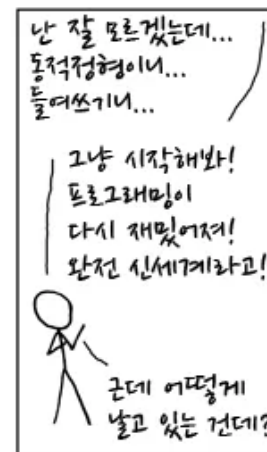 난 잘 모르겠는데...
동적정형이니...
들여쓰기니...
그냥 시작해봐!
프로그래밍이
다시 재밌어져!
완전 신세계라고!
근데 어떻게
날고 있는 건데?